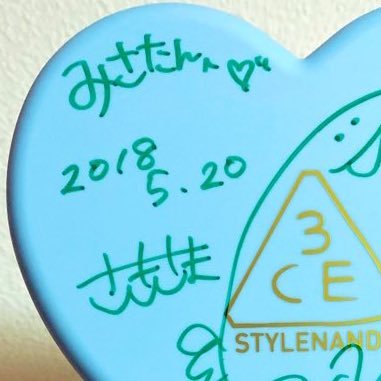 みさたん♡
2018
5.20
3
CE
STYLENAND